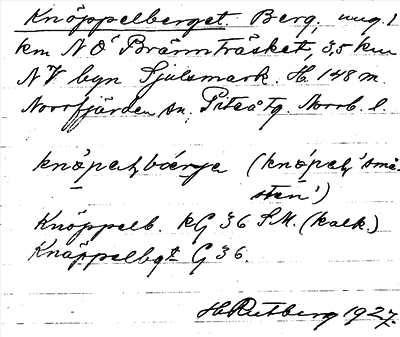 Knöppelberget. Berg, ung. 1
km NÖ Brännträsket, 3,5 km
NV byn Sjulsmark. H. 148 m.
Norrfjärden sn, Piteå tg. Norrb. l.
(knópaḷ 'små-
sten')
Knöppelb. kG 36 S.M. (kalk.)
Knäppelbgt G 36.
H. Rutberg 1927.